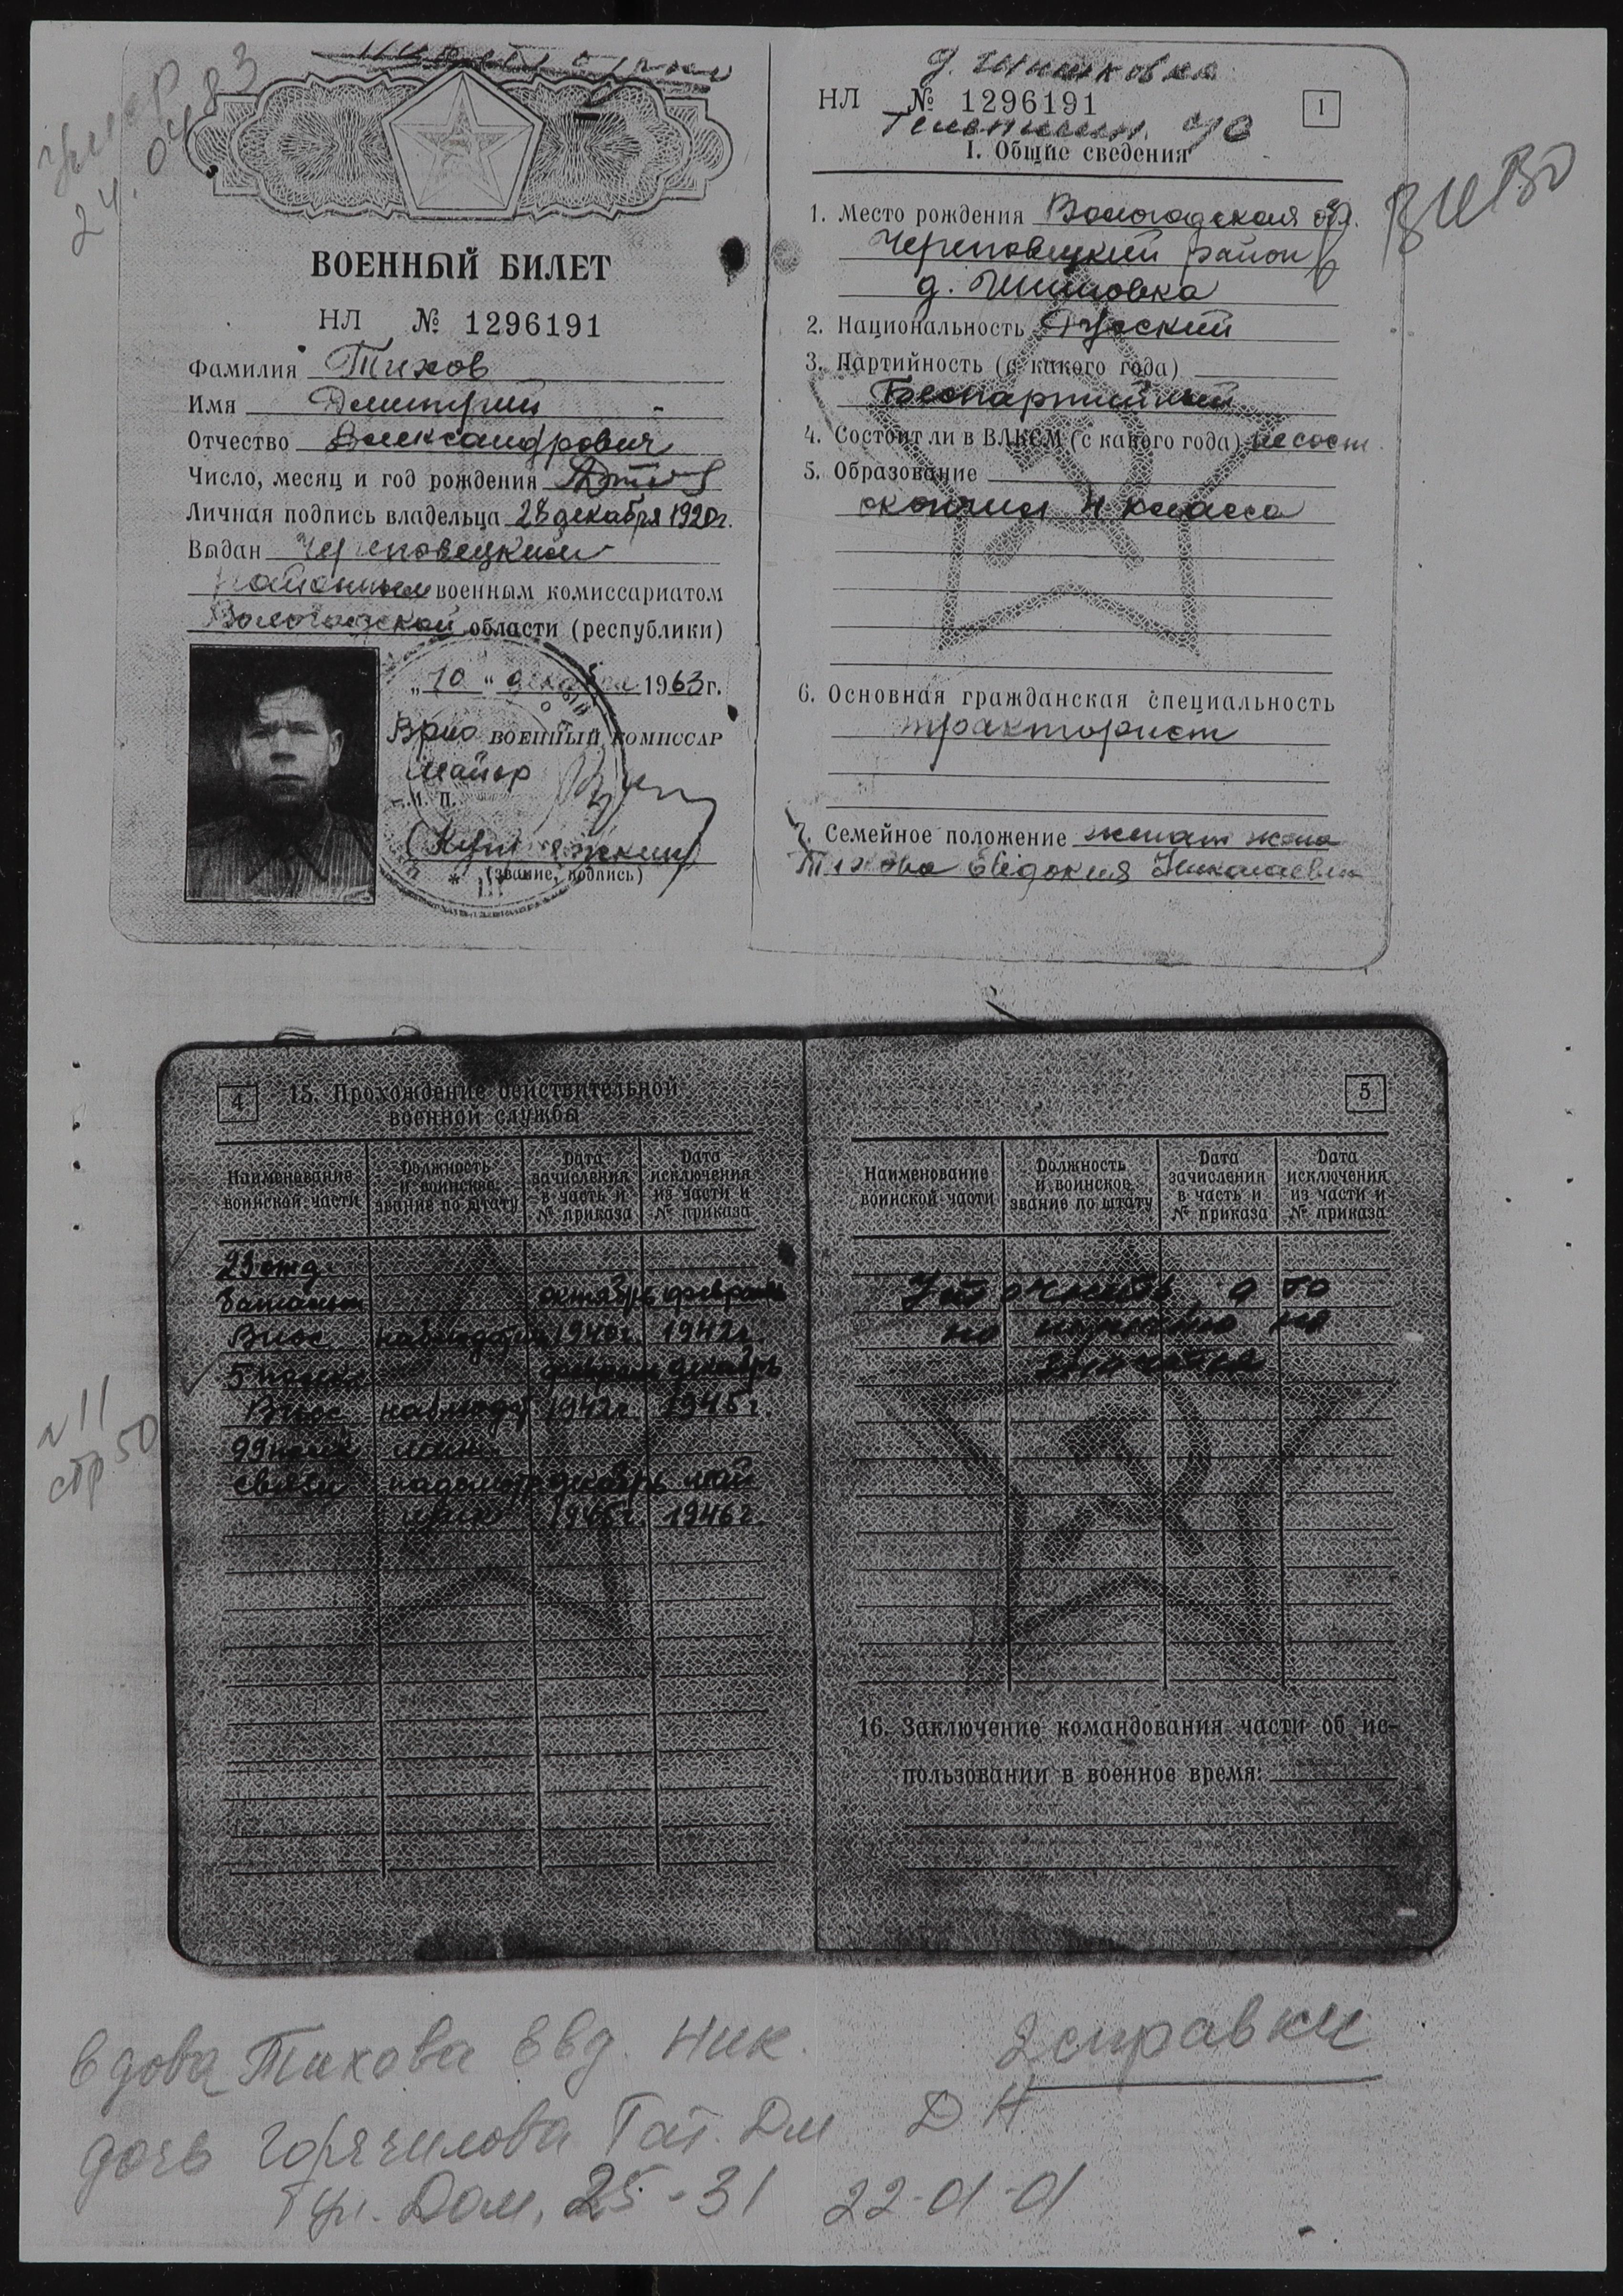 Умер
24.04.83
ВОЕННЫЙ БИЛЕТ
НЛ № 1296191
Фамилия Тихов
Имя Дмитрий -
Отчество Александрович
Число, месяц и год рождения
Личная подпись владельца 28 декабря 1920г.
Выдан Череповецким
районным военным комиссариатом
Вологодской области (республики)
„10" декабря 1963 г.
Врио ВОЕННЫЙ КОМИССАР
майор
М. П.
(звание, подпись)
НЛ № 1296191
1
I. Общие сведения
1. Место рождения Вологодская обл.
Череповецкий район
д.
2. Национальность Русский
3. Партийность (с какого года)
Беспартийный
4. Состоит ли в ВЛКСМ (с какого года) не сост.
5. Образование
окончил 4 класса
6. Основная гражданская специальность
тракторист
7. Семейное положение женат жена
Тихова Евдокия Николаевна
4
15. Прохождение действительной
военной службы
Наименование воинской части
Должность и воинское звание по штату
Дата зачисления в часть и № приказа
Дата исключения из части и № приказа
29 отд.
батальон октябрь февраль
Внос наблюдат 1940г. 1942г.
5 полк февраль декабрь
Внос наблюдат 1942г. 1945г.
99 полк
связи надсмотр декабрь май
1945г. 1946г.
5
Наименование воинской части
Должность и воинское звание по штату
Дата зачисления в часть и № приказа
Дата исключения из части и № приказа
16. Заключение командования части об ис-
пользовании в военное время:
N 11
стр 50
вдова Тихова Евд. Ник.
2 справки
дочь Горячилова Тат. Дм Д Н
25-31 22-01-01